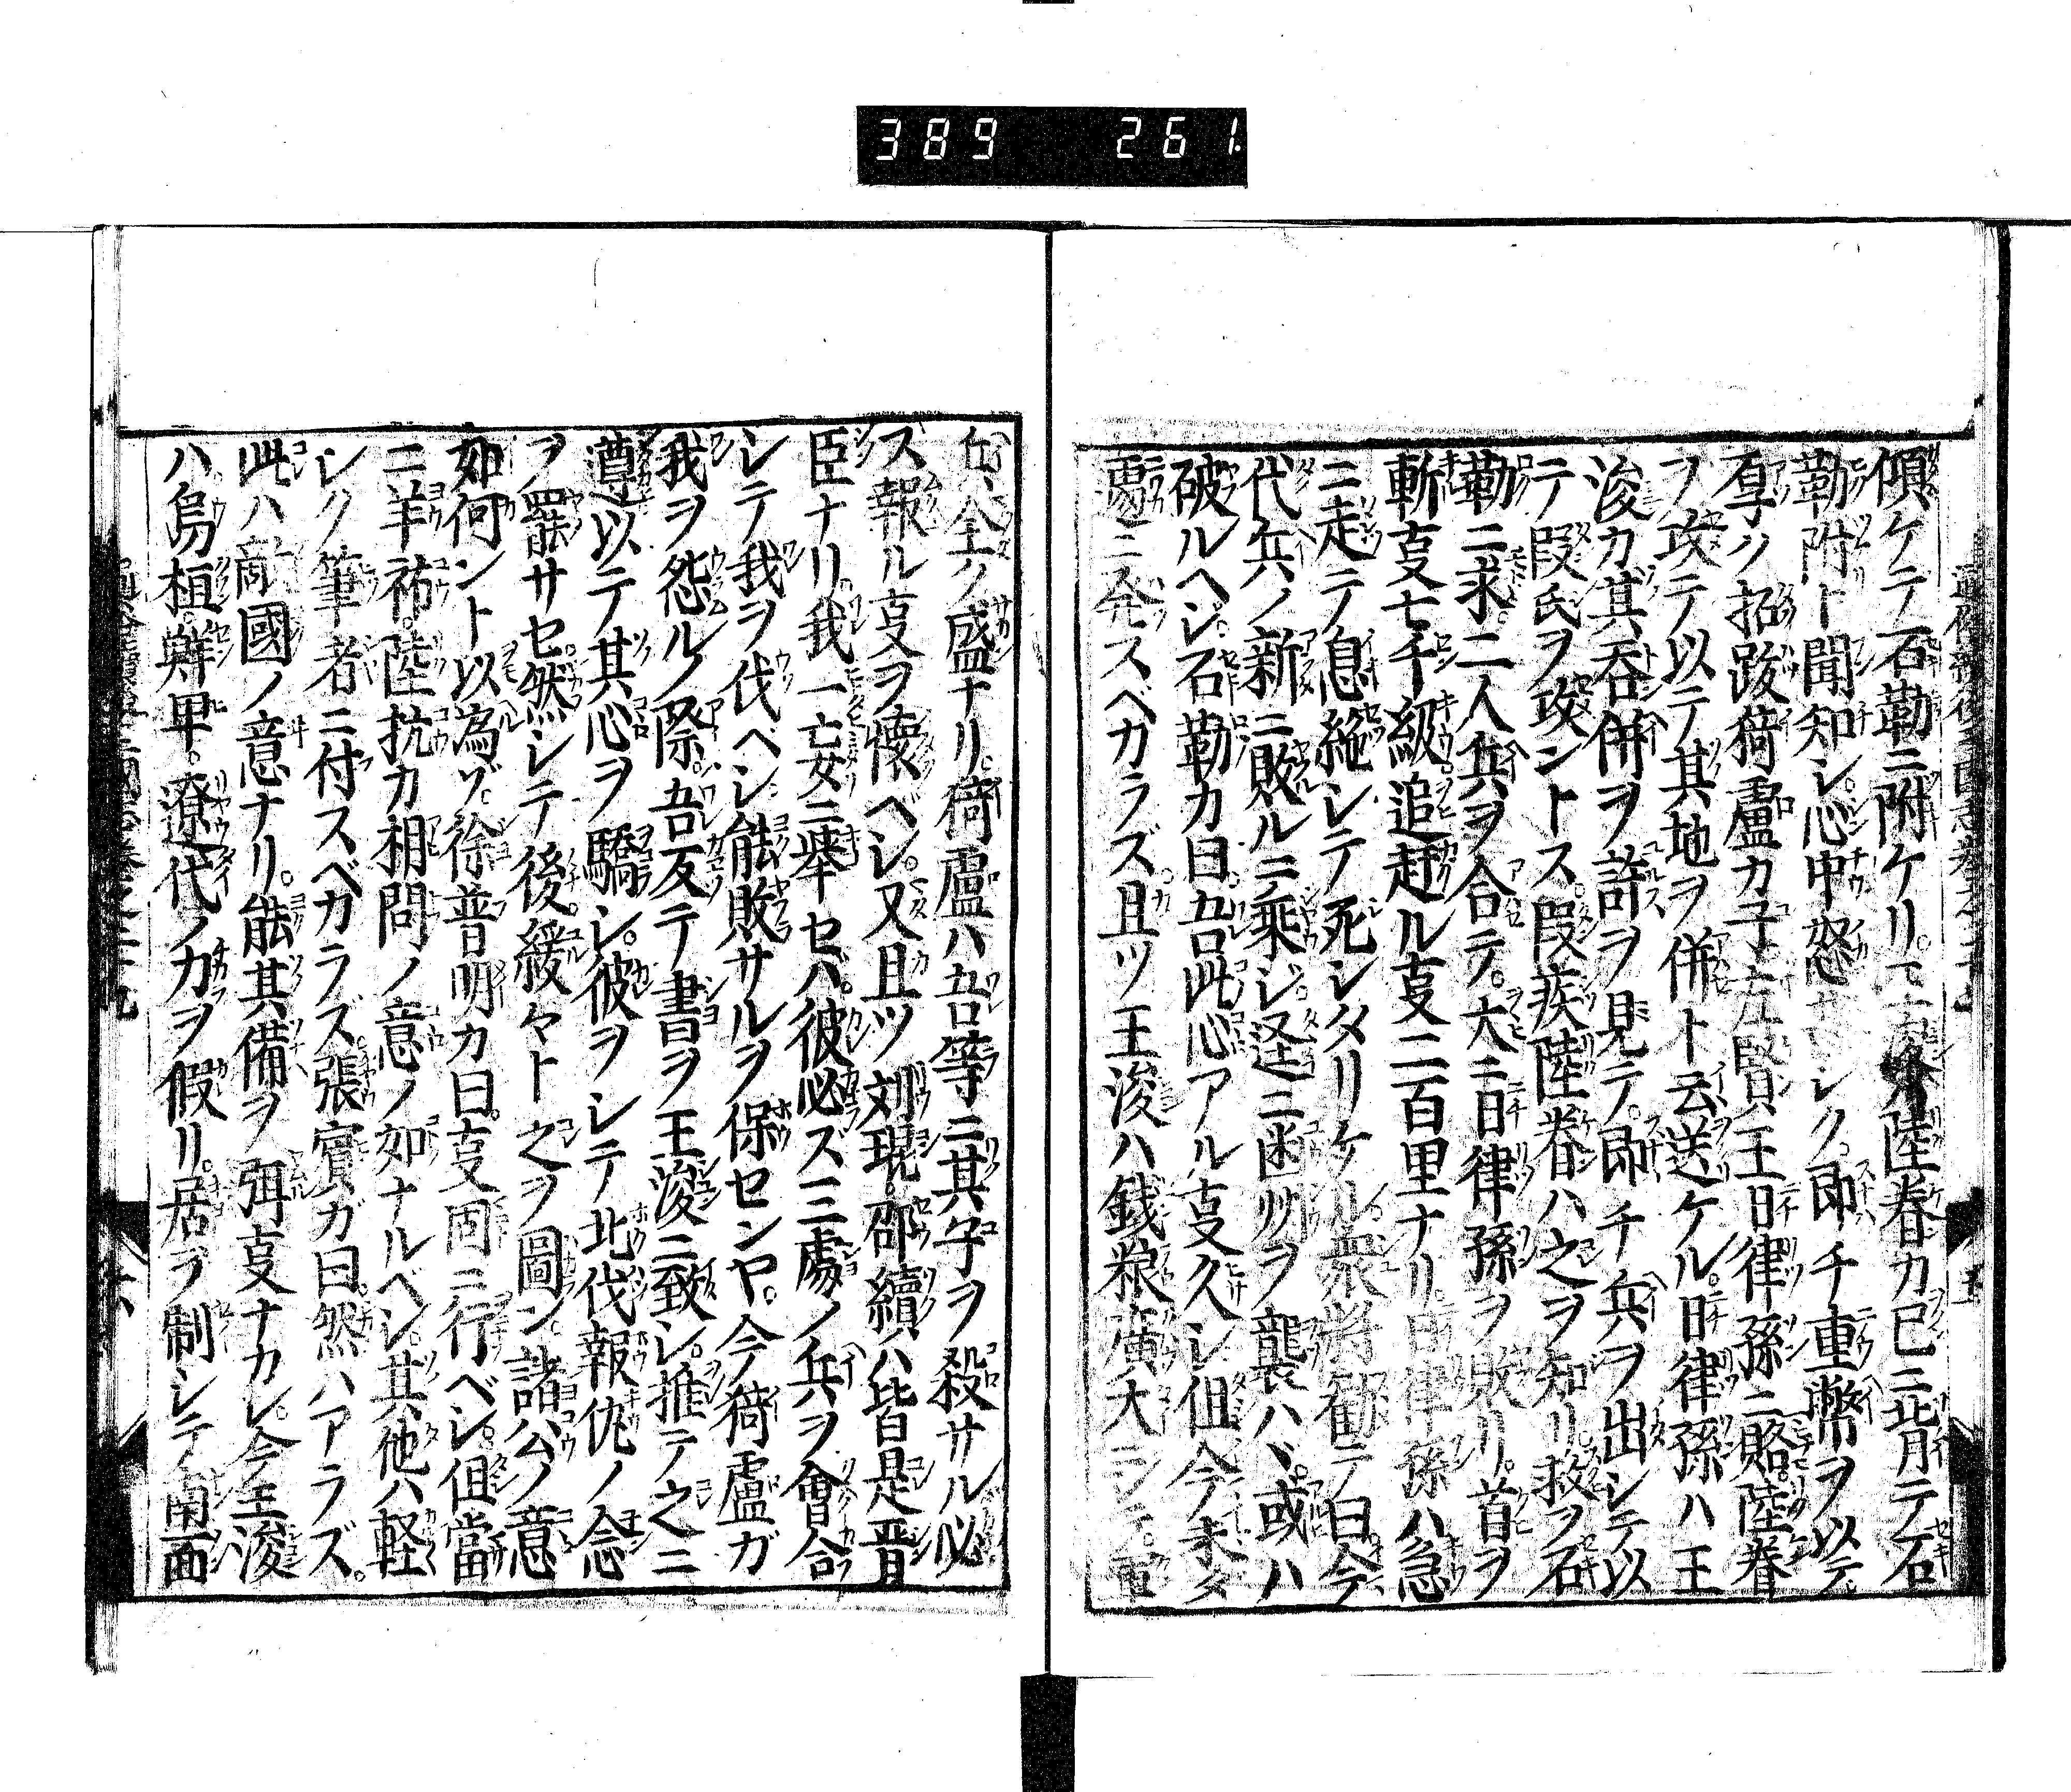 389 261.
傾ケテ石勒ニ附ケリ王浚陸眷カ已ニ背テ石
勒附ト聞知シ心中怒ヤシク即チ重幣ヲ以テ
厚ク拓跋猗盧カ子左賢王日律孫ニ賂陸眷
ヲ攻テ以テ其地ヲ併ト云送ケル日律孫ハ王
浚カ其呑併ヲ許ヲ見テ即チ兵ヲ出シテ以
テ段氏ヲ攻ントス段疾陸眷ハ之ヲ知リ救ヲ石
勒ニ求二人兵ヲ合テ大ニ日律孫ヲ敗リ首ヲ
斬㕝七千級追赶ル㕝二百里ナリ日律孫ハ急
ニ走テ息絶シテ死シメリケル衆將勧テ曰今
代兵ノ新ニ敗ルニ乗シ逕ニ幽州ヲ襲ハヽ或ハ
破ルヘシ石勒カ曰吾此心アル㕝久シ但今未タ
遽ニ発スベカラズ且ツ王浚ハ銭粮廣大ニシテ
兵全ク盛ナリ猗盧ハ吾等ニ其子ヲ殺サル必
ズ報ル㕝ヲ懐ベシ又且ツ刘琨邵續ハ皆是晋
臣ナリ我一妄ニ舉セバ彼必ズ三處ノ兵ヲ會合
シテ我ヲ伐ベシ能敗サルヲ保センヤ今猗盧ガ
我ヲ怨ルノ際吾反テ書ヲ王浚ニ致シ推テ之ニ
遵以テ其心ヲ驕シ彼ヲシテ北伐報仇ノ念
ヲ罷サセ然シテ後緩々ト之ヲ圖ン諸公ノ意
如何ント以為ヅ徐普明カ曰㕝固ニ行ベシ但當
ニ羊祜陸抗カ相問ノ意ノ如ナルベシ其他ハ軽
シク筆者ニ付スベカラズ張賓ガ曰然ハアラズ
此ハ敵國ノ意ナリ能其備ヲ弭㕝ナカレ今王浚
ハ烏桓鮮卑遼代ノカヲ假リ居ヲ制シテ南面